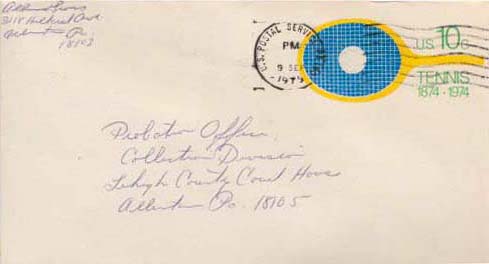 3118 Ave
Allentown Pa.
18103
U.S. POSTAL SERVICE
PM
9 SEP
1975
U.S. 10c
TENNIS
1874-1974
Probation Office
Collection Division
Lehigh County Court House
Allentown Pa. 18105